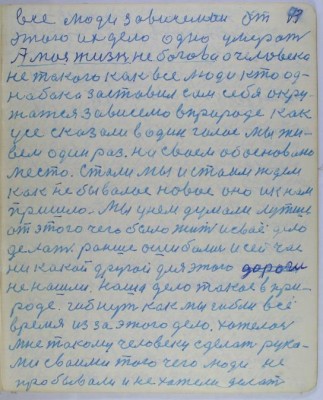 все люди зависемаи от 17
этого их дело одно умерать
А моя жизнь не богова а человека
не такого как все люди кто од-
набака заставил сам себя окру-
жатся зависемо в природе как
усе сказали в один голос мы жи-
вем один раз. на своем обоснованом
место. Стали мы и стаим ждем
как не бывалое новое оно и к нам
пришло. Мы у нем думали лутше
от этого чего было жить и своё дело
делать ранше ошибались и сей час
ни какой другой для этого дороги
не нашли. наша дело такое в при-
роде. гибнуть как мы гибли всё
время из за этого дело. хотелось
мне такому человеку сделать рука-
ми своими того чего люди не
пробывали и не хотели делать